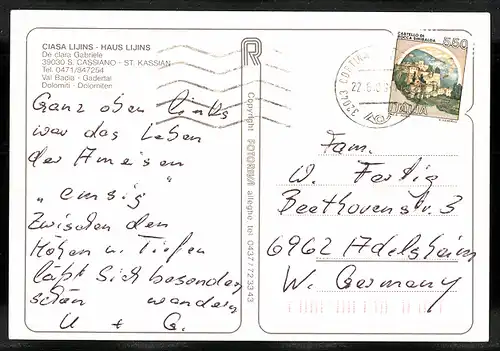 CIASA LIJINS - HAUS LIJINS
De clara Gabriele
39030 S. CASSIANO - ST. KASSIAN
Tel. 0471/847254
Val Badia - Gadertal
Dolomiti - Dolomiten
Ganz oben links
war das Leben
der Ameisen
" emsig "
Zwischen den
Höhen u. Tiefen
läßt sich besonders
schön wandern
U + G.
R
Copyright FOTORIVA alleghe tel 0437 / 72 33 43
32043 CORTINA
CASTELLO DI
ROCCA SINIBALDA
550
ITALIA
Fam.
W. Fertig
Beethovenstr. 3
6962 Adelsheim
W. Germany